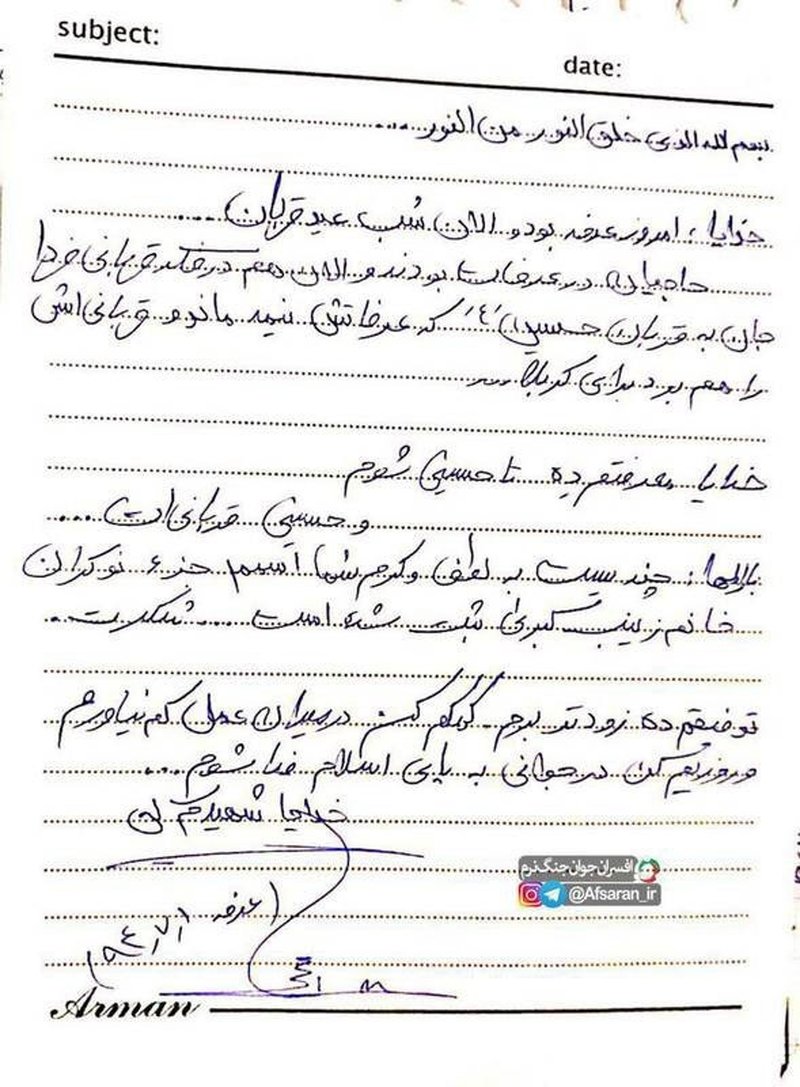 subject:
date:
بسم الله الذی خلق النور من النور....
خدایا؛ امروز عرفه بود و الان شب عید قربان....
حاجیان در عرفات بودند و الان هم در فکر قربانی فردا
جان به قربان حسین (ع) که عرفاتش نیمه ماند و قربانی اش
را هم برد برای کربلا....
خدایا معرفتم ده تا حسینی شوم
و حسینی قربانی ات....
بارالها؛ چند سالیست به لطف و کرم شما اسمم جزء نوکران
خانم زینب کبری ثبت شده است.... شکرت...
توفیقم ده زودتر بروم. کمکم کن در میدان عمل کم نیاورم
و روزیم کن در جوانی به پای اسلام فدا شوم....
خدایا شهیدم کن
عرفه
۹۴/۷/۱
افسران جوان جنگ نرم
@Afsaran_ir
Arman